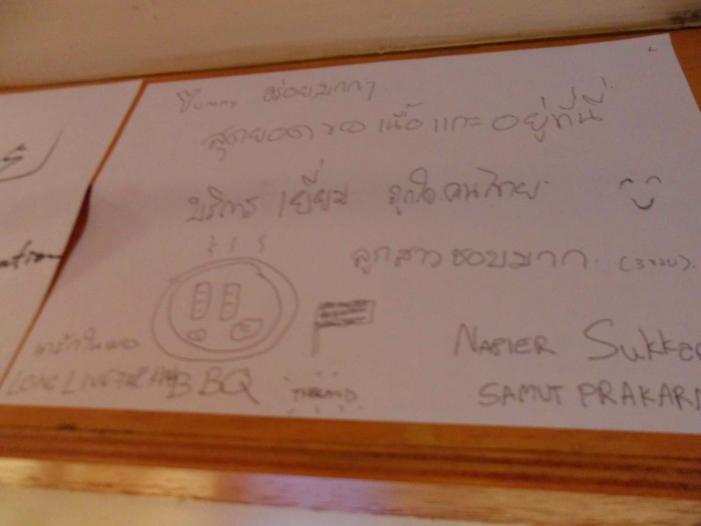 Yummy อร่อยมากๆ
สุดยอดของเนื้อแกะอยู่ที่นี่
บริการ เยี่ยม ถูกใจ คนไทย
ลูกสาวชอบมาก (3ขวบ)
BBQ
THAILAND
NAPIER
SAMUT PRAKARN
LONG LIVE THE